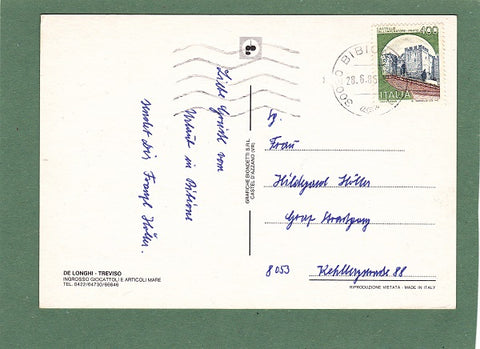 Liebe Grüße vom
Urlaub in Bibione
sendet dir Franzl Höller.
DE LONGHI - TREVISO
INGROSSO GIOCATTOLI E ARTICOLI MARE
TEL. 0422/64730/66646
GRAFICHE BIONDETTI S.R.L.
CASTEL D'AZZANO (VR)
400
ITALIA
BIBIO
28.6.85
Frau
Hildegard Höller
Graz
8053
88
RIPRODUZIONE VIETATA - MADE IN ITALY